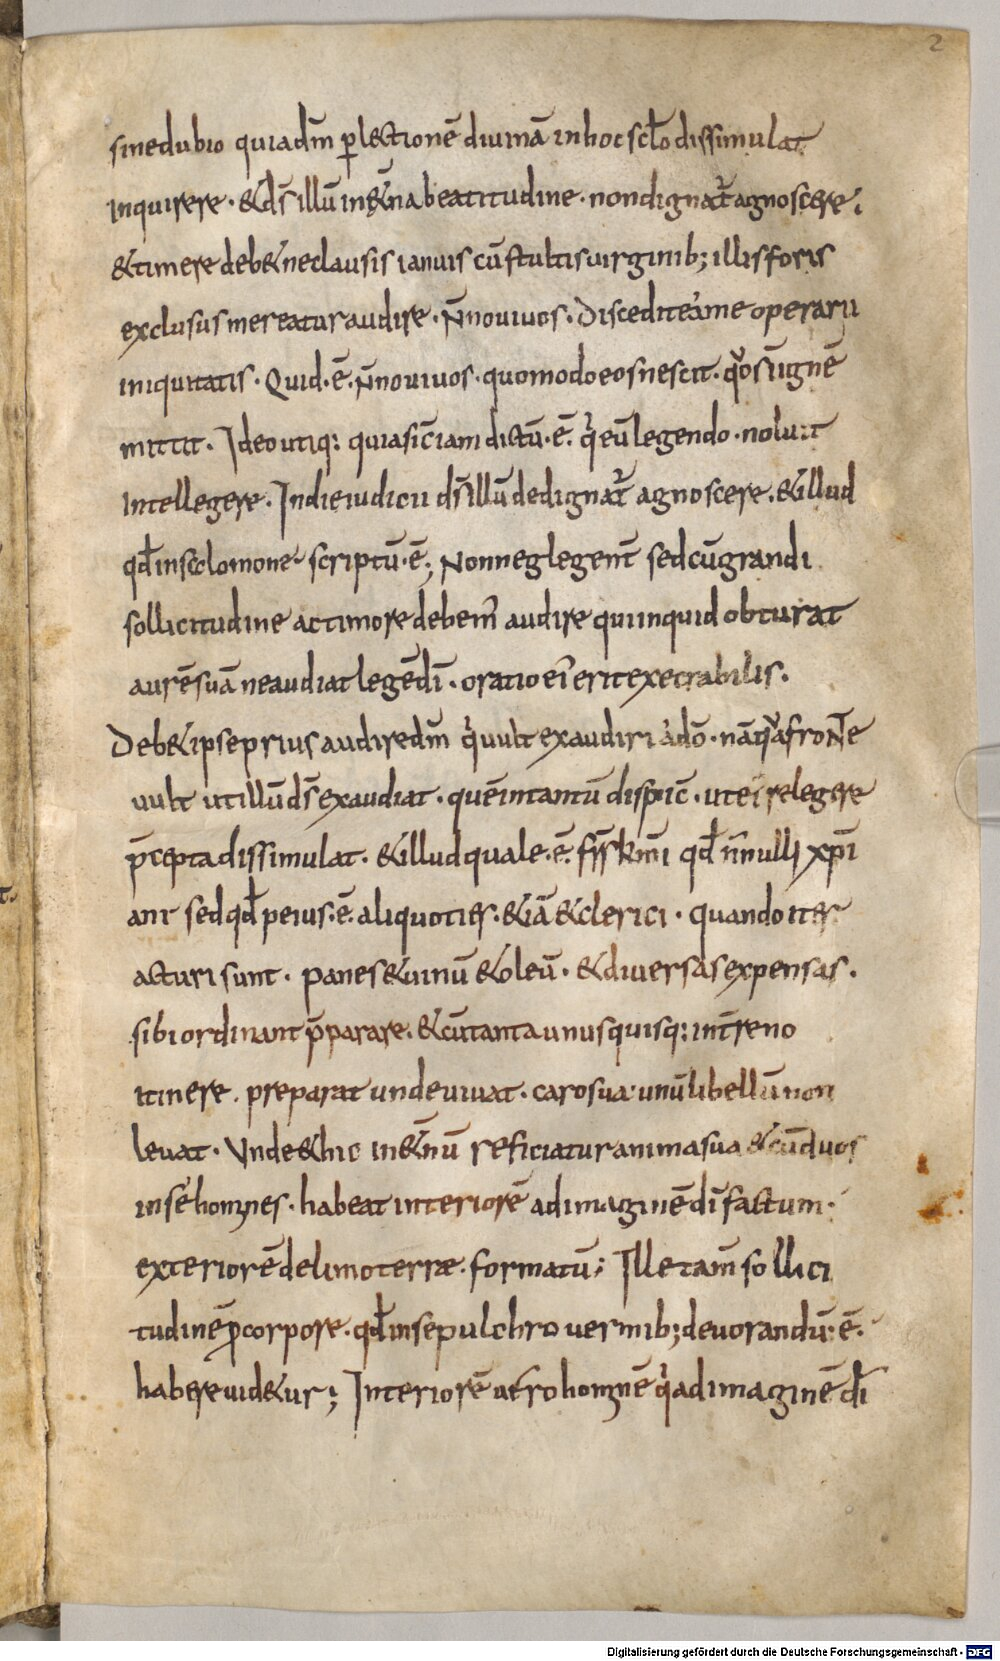 2
sinedubio quiadm̄ ꝑlectionē diuinā inhoc sc̄lo dissimulat
inquirere · &ds̄ illū in&̄na beatitudine · nondignat᷑ agnoscere ;
&timere deb& neclausis ianuis cū stultis uirginib; illis foris
exclusus mereatur audire · N̄nouiuos · Discedite ame operarii
iniquitatis · Quid · ē · n̄nouiuos · quomodo eos nescit · qͦs inignē
mittit · Ideo utiq: quia sic̄ iam dictū · ē · qͥ eū legendo · noluit
intellegere · Indie iudicii ds̄ illū dedignat᷑ agnoscere · &illud
qđ in salomone scriptū · ē ; Nonneglegent̄ sed cūgrandi
sollicitudine actimore debem᷒ audire qui inquid obturat
aurē suā neaudiat legē dī · oratio ei᷒ erit execrabilis .
Deb& ipse prius audire dm̄ qͥ uult exaudiri adō · nā qͣ fronte
uult ut illū ds̄ exaudiat · quē intantū dispic̄ · ut ei᷒ relegere
p̄cepta dissimulat · &illud quale · ē · fr̄s km̄i qđ n̄nulli xp̄i
ani sed qđ peius · ē · aliquoties · &iā &clerici · quando iter
acturi sunt · panes &uinū &oleū · &diuersas expensas .
sibi ordinant p̄parare · &cū tanta unusquisq: int̄reno
itinere . preparat unde uiuat · caro sua · unū libellū non
leuat · Unde &hic in&̄nū reficiatur anima sua &cū duos
inse homines · habeat interiorē adimaginē dī factum ·
exteriorē delimo terrae · formatū ; Ille tam̄ sollici
tudinē ꝓcorpore · qđ insepulchro uermib; deuorandū · ē ·
habere uid&ur ; Interiorē uero hominē qͥ adimaginē dī
Digitalisierung gefördert durch die Deutsche Forschungsgemeinschaft - DFG